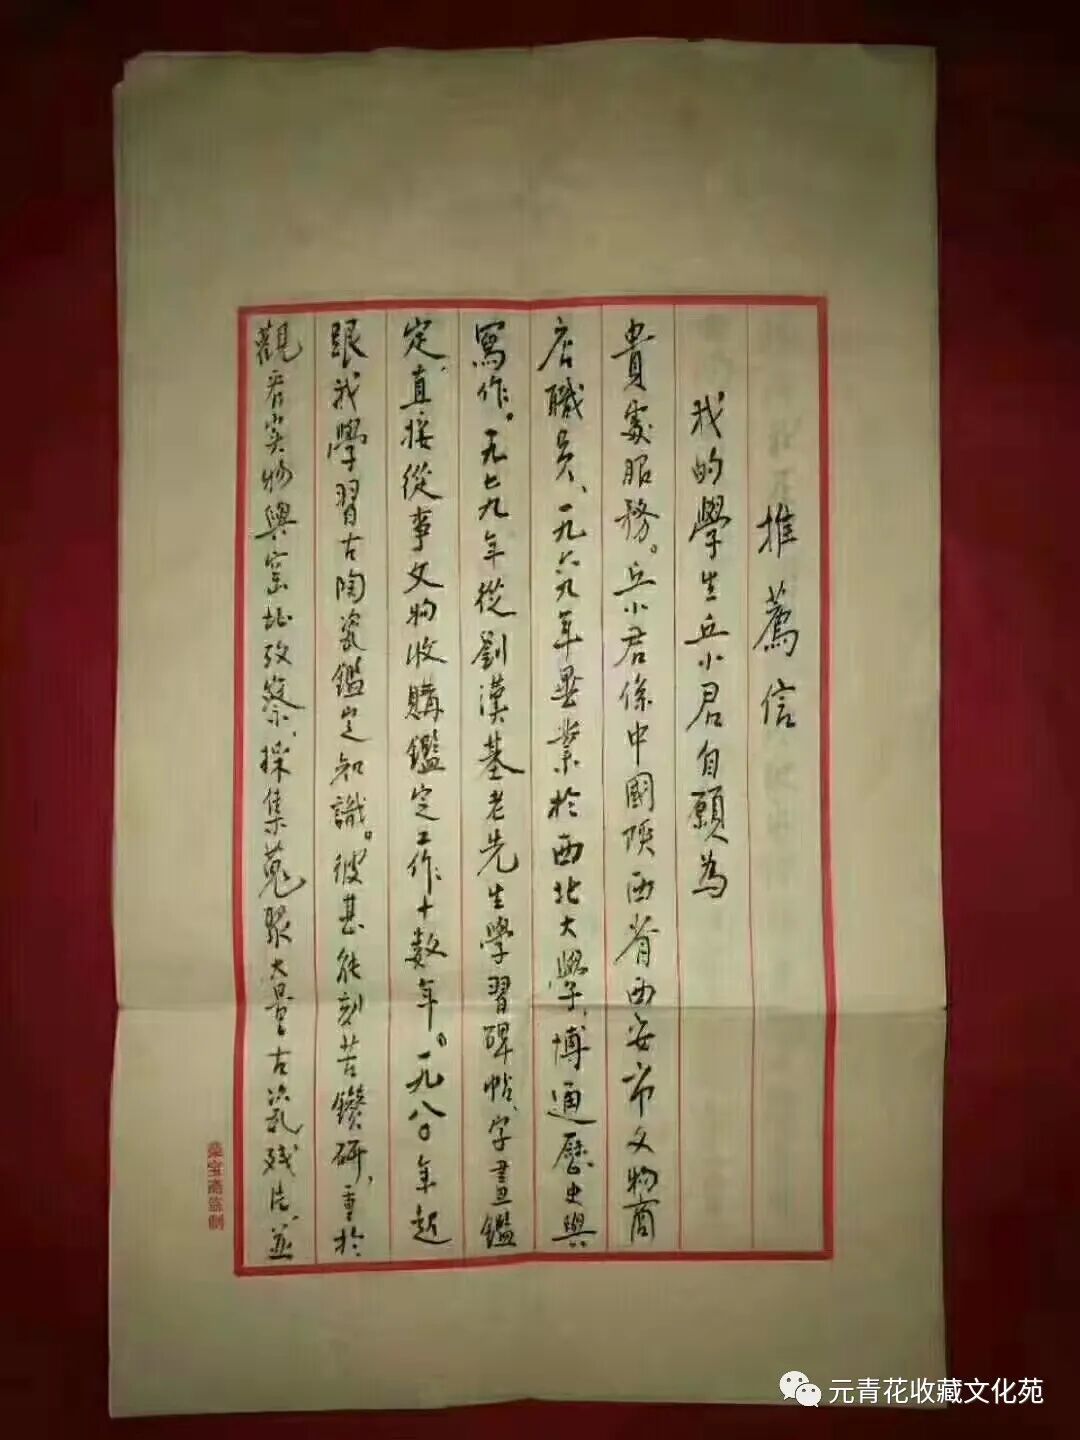 推薦信
我的學生丘小君自願為
貴處服務。丘小君係中國陝西省西安市文物商
店職員、一九六九年畢業於西北大學，博通歷史與
寫作。一九七九年從劉漢基老先生學習碑帖、字畫鑑
定，直接從事文物收購鑑定工作十數年。一九八〇年起
跟我學習古陶瓷鑑定知識。彼甚能刻苦鑽研，重於
觀看实物與窑址攷察，採集蒐聚大量古瓷残片，並
榮宝斋监制
元青花收藏文化苑